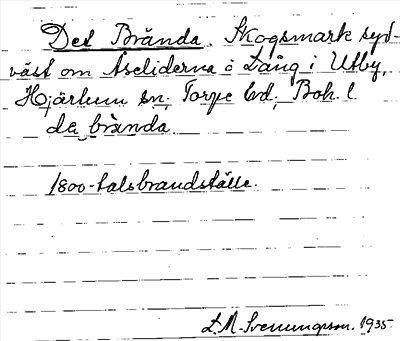 Det Brända. Skogsmark syd-
väst om Åseliderna å Lång i Utby,
Hjärtum sn; Torpe hd; Boh. l.
da brànda
1800-talsbrandställe.
L.M. Svenungsson. 1935.